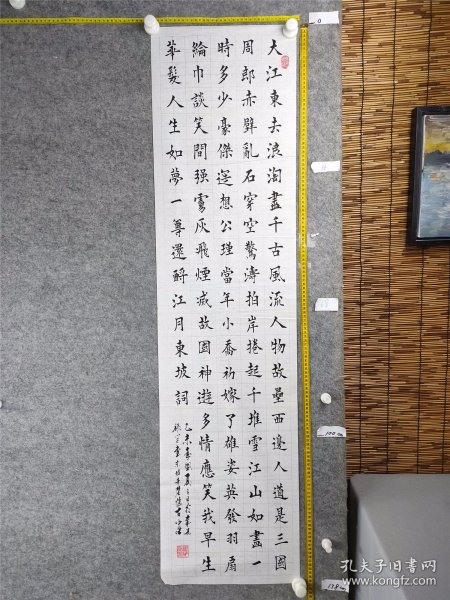 大江東去浪淘盡千古風流人物故壘西邊人道是三國
周郎赤壁亂石穿空驚濤拍岸捲起千堆雪江山如畫一
時多少豪傑遥想公瑾當年小喬初嫁了雄姿英發羽扇
綸巾談笑間强虜灰飛煙滅故國神遊多情應笑我早生
華髮人生如夢一尊還酹江月東坡詞
乙未年
0
100cm
孔夫子旧书网